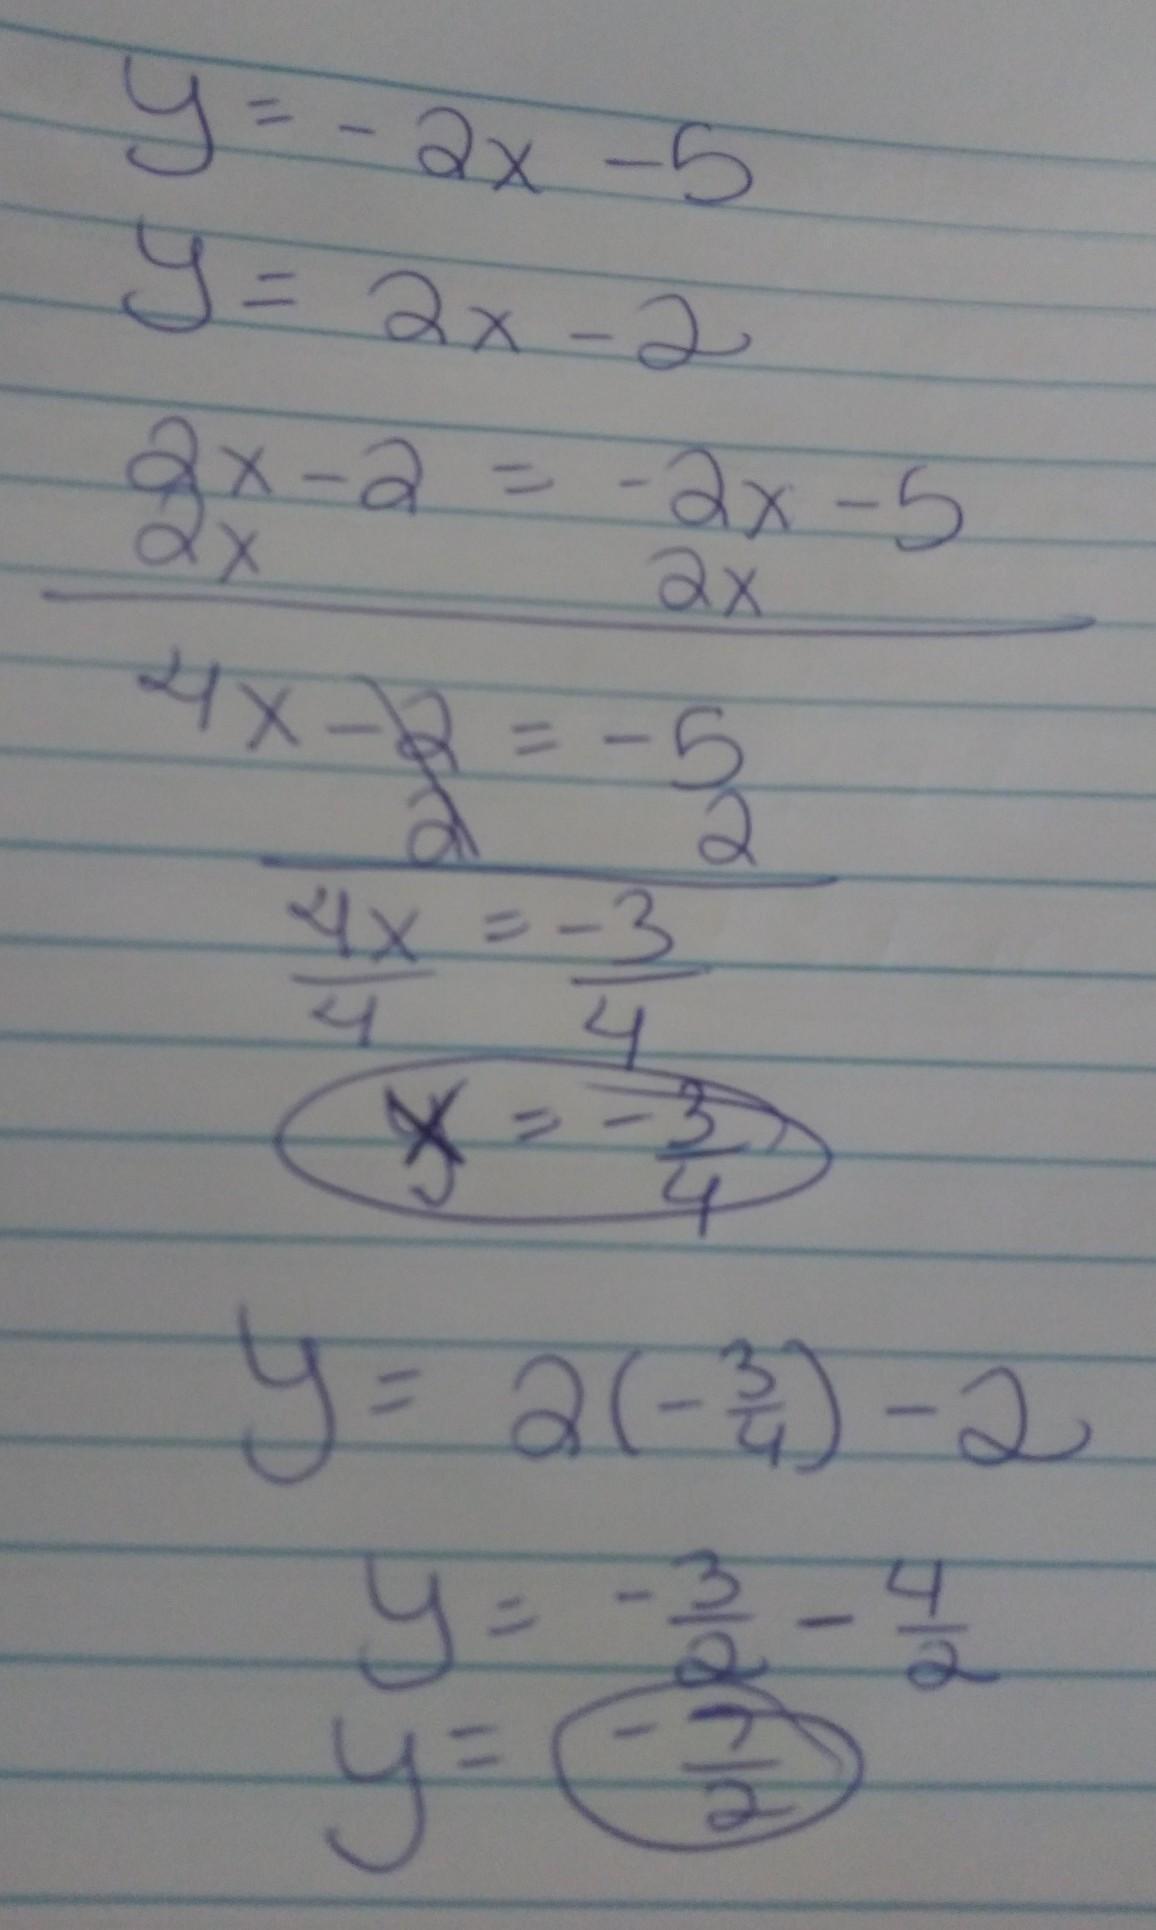 y = -2x - 5
y = 2x - 2
2x - 2 = -2x - 5
2x 2x
4x - 2 = -5
2 2
4x/4 = -3/4
x = -3/4
y = 2(-3/4) - 2
y = -3/2 - 4/2
y = -7/2